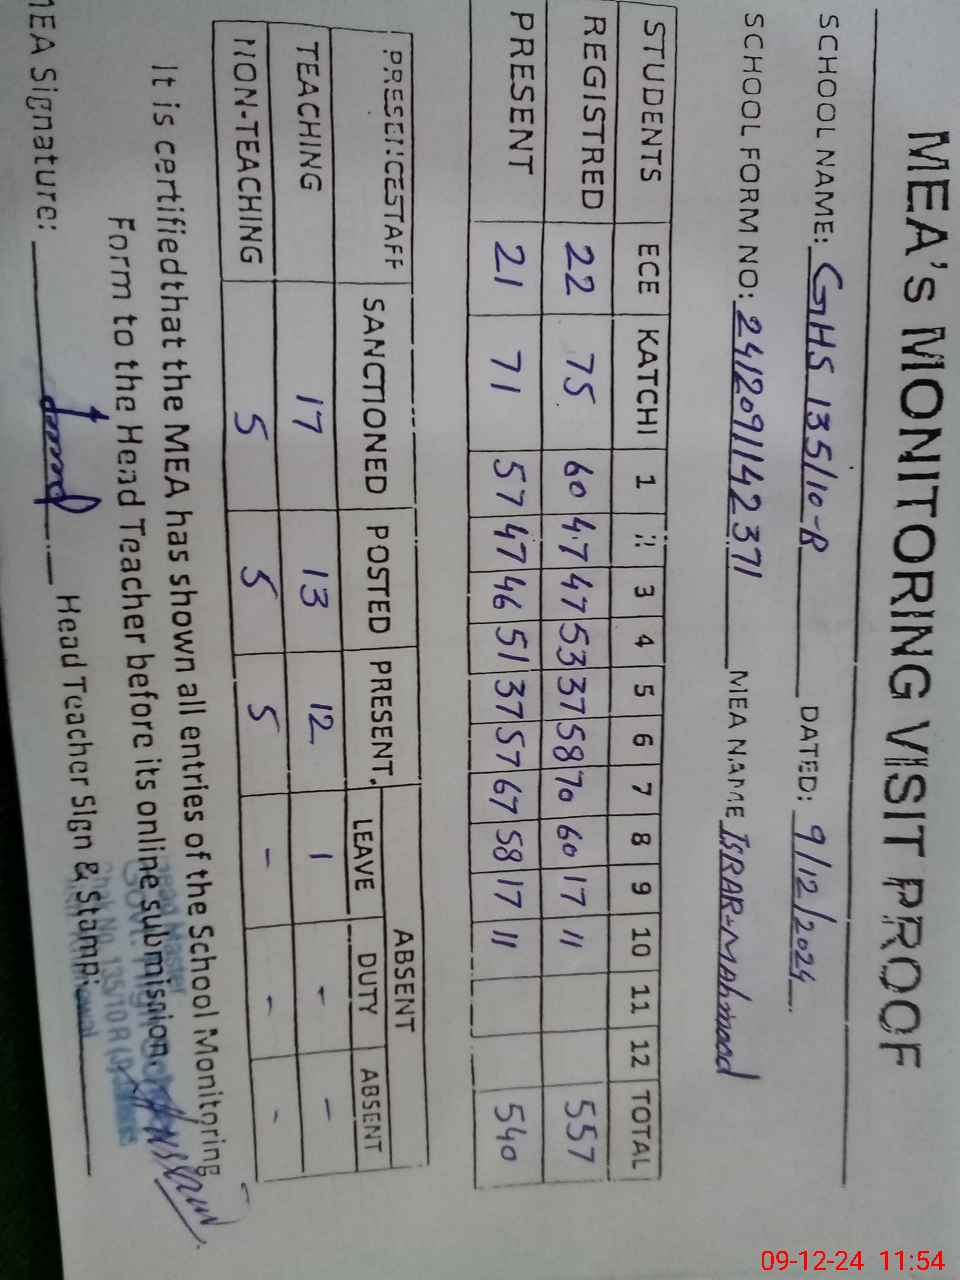 MEA's MONITORING VISIT PROOF
SCHOOL NAME: GHS 135/10-R DATED: 9/12/2024
SCHOOL FORM NO: 2412091142371 MEA NAME ISRAR-Mahmood
STUDENTS ECE KATCHI 1 2 3 4 5 6 7 8 9 10 11 12 TOTAL
REGISTRED 22 75 60 47 47 53 37 58 70 60 17 11 557
PRESENT 21 71 57 47 46 51 37 57 67 58 17 11 540
PRESENCESTAFF SANCTIONED POSTED PRESENT. ABSENT
LEAVE DUTY ABSENT
TEACHING 17 13 12 1 - -
NON-TEACHING 5 5 5 - - -
It is certifiedthat the MEA has shown all entries of the School Monitoring
Form to the Head Teacher before its online submission.
MEA Signature: Head Teacher Sign & Stamp:
Head Master
Govt. High School
Chak No. 135/10 R
09-12-24 11:54